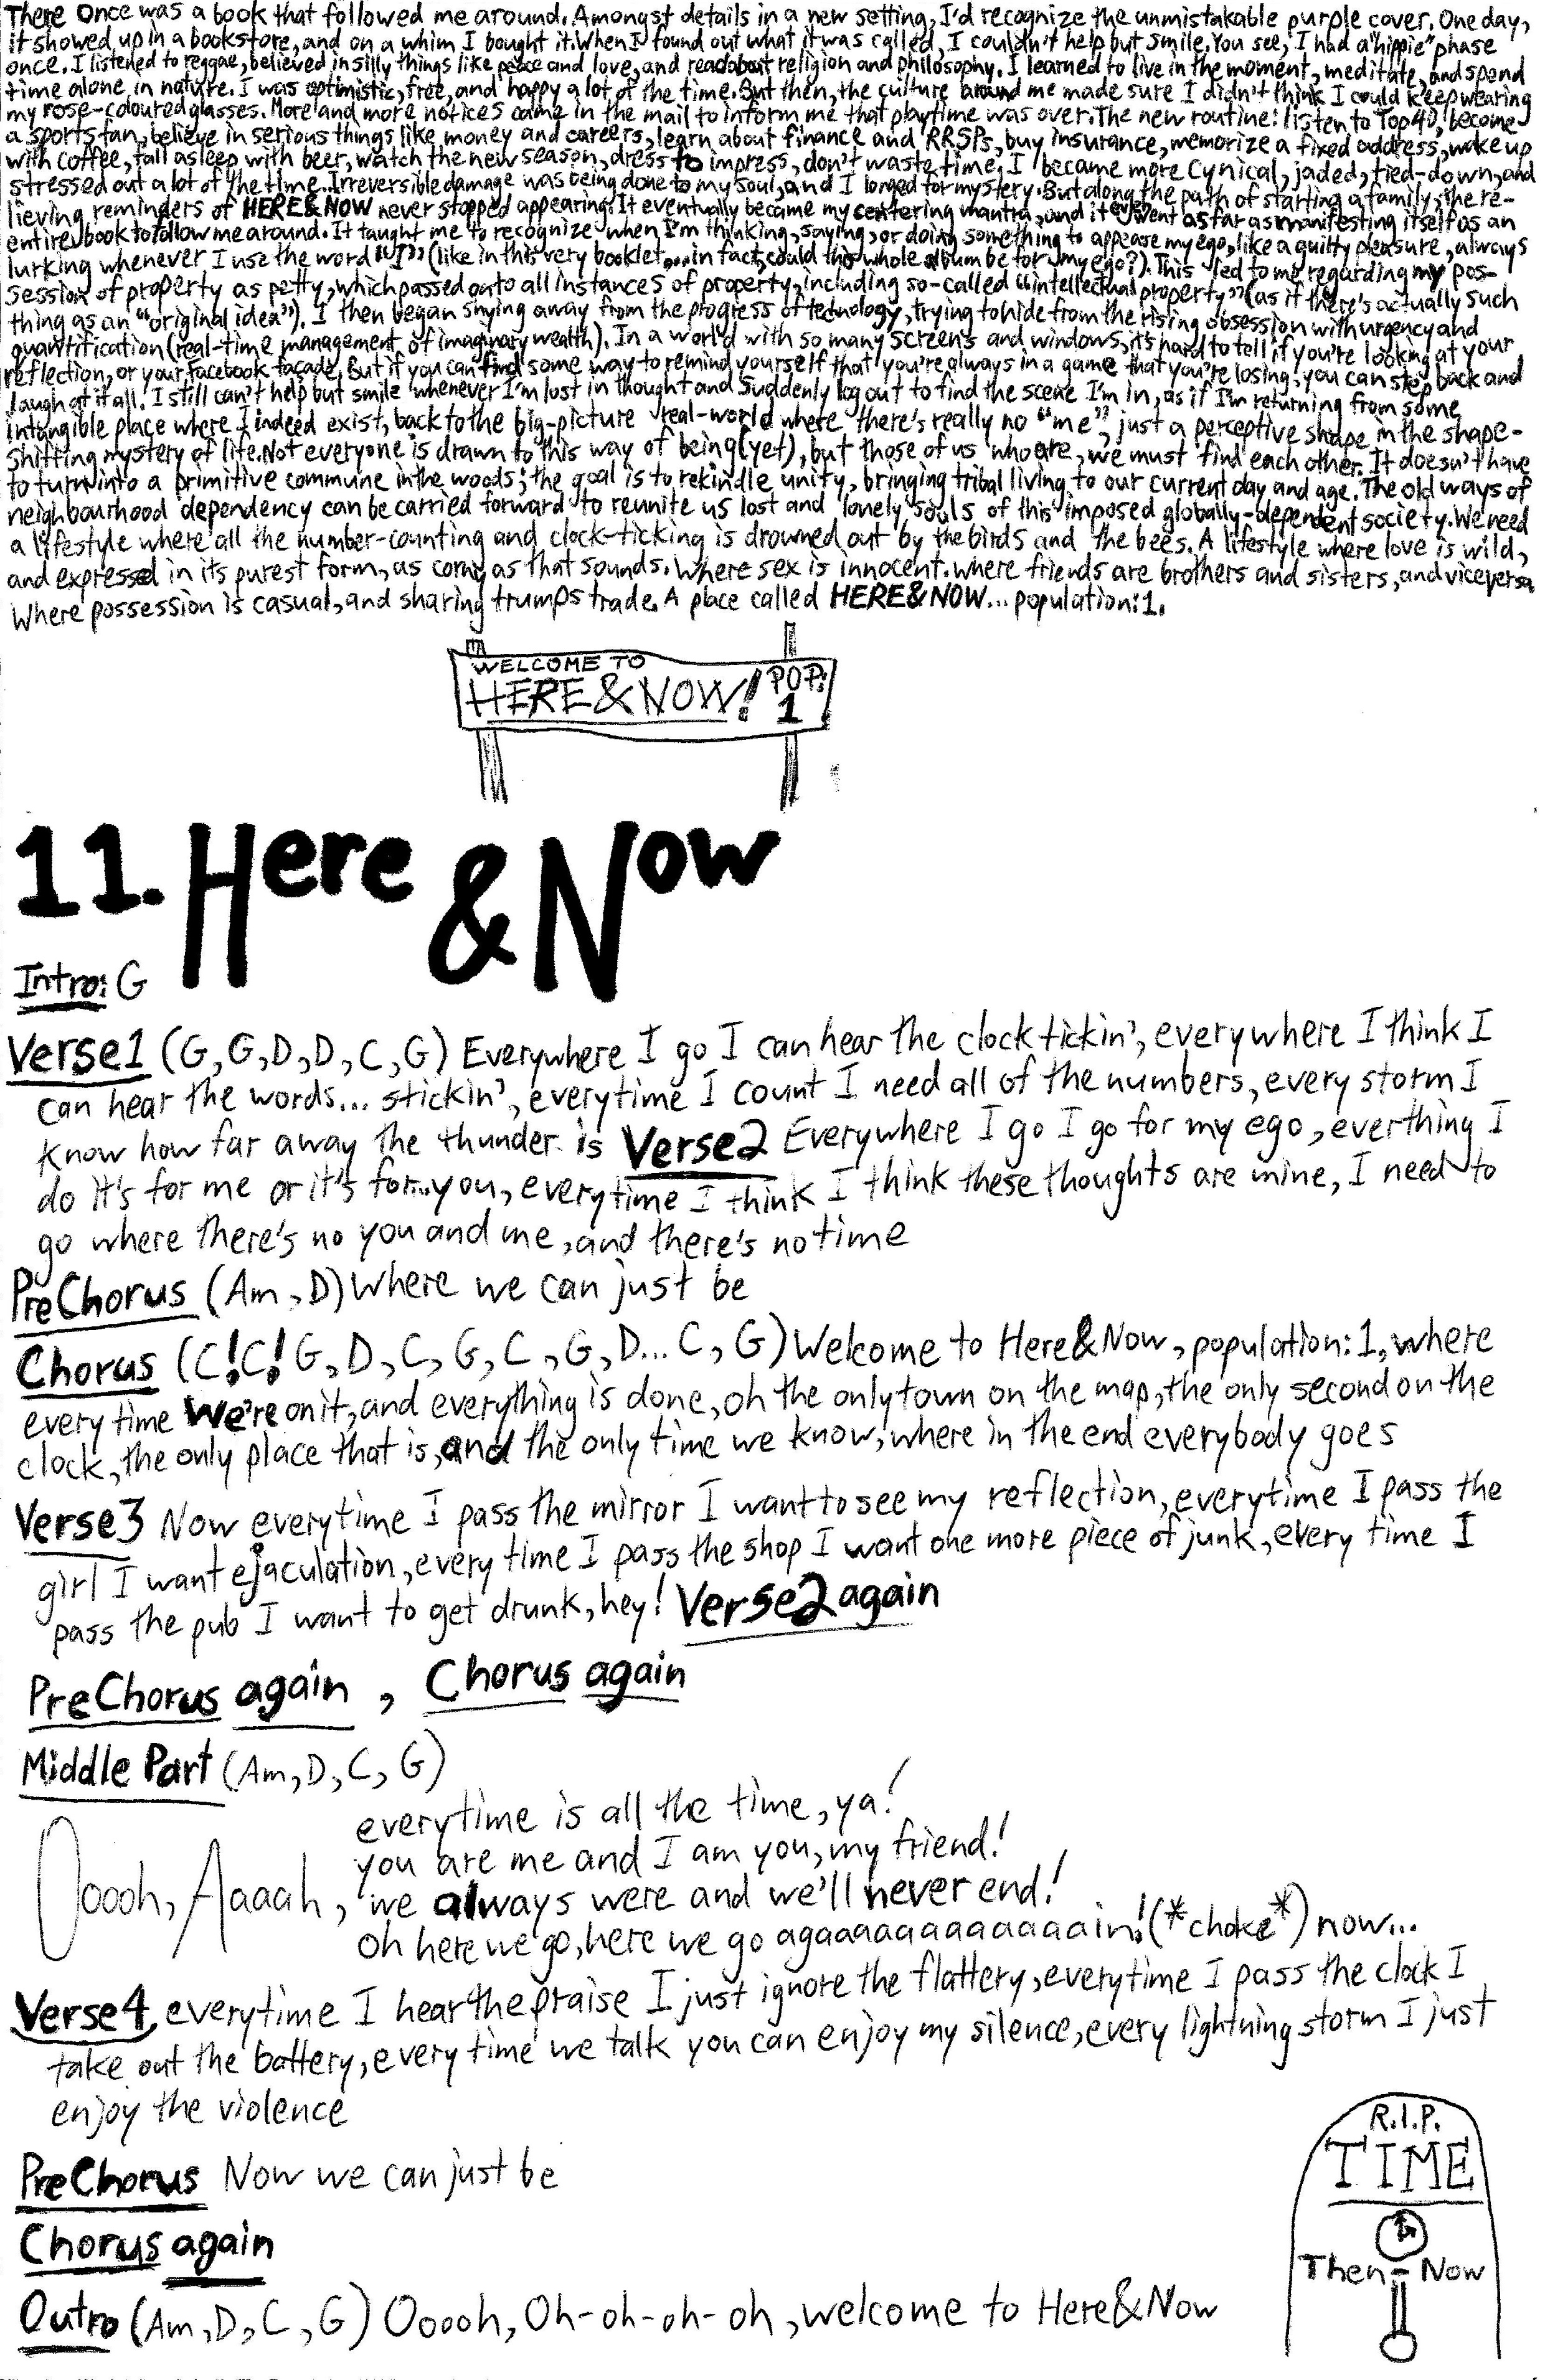 There once was a book that followed me around. Amongst details in a new setting, I'd recognize the unmistakable purple cover. One day,
it showed up in a bookstore, and on a whim I bought it. When I found out what it was called, I couldn't help but smile. You see, I had a "hippie" phase
once. I listened to reggae, believed in silly things like peace and love, and read about religion and philosophy. I learned to live in the moment, meditate, and spend
time alone in nature. I was optimistic, free, and happy a lot of the time. But then, the culture around me made sure I didn't think I could keep wearing
my rose-coloured glasses. More and more notices came in the mail to inform me that playtime was over. The new routine: listen to Top 40, become
a sports fan, believe in serious things like money and careers, learn about finance and RRSPs, buy insurance, memorize a fixed address, wake up
with coffee, fall asleep with beer, watch the new season, dress to impress, don't waste time. I became more cynical, jaded, tied-down, and
stressed out a lot of the time. Irreversible damage was being done to my soul, and I longed for mystery. But along the path of starting a family, the re-
lieving reminders of HERE&NOW never stopped appearing. It eventually became my centering mantra, and it even went as far as manifesting itself as an
entire book to follow me around. It taught me to recognize when I'm thinking, saying, or doing something to appease my ego, like a guilty pleasure, always
lurking whenever I use the word "I" (like in this very booklet... in fact, could this whole album be for my ego?). This led to me regarding my pos-
session of property as petty, which passed onto all instances of property, including so-called "intellectual property" (as if there's actually such
thing as an "original idea"). I then began shying away from the progress of technology, trying to hide from the rising obsession with urgency and
quantification (real-time management of imaginary wealth). In a world with so many screens and windows, it's hard to tell if you're looking at your
reflection, or your facebook facade. But if you can find some way to remind yourself that you're always in a game that you're losing, you can step back and
laugh at it all. I still can't help but smile whenever I'm lost in thought and suddenly log out to find the scene I'm in, as if I'm returning from some
intangible place where I indeed exist, back to the big-picture real-world where there's really no "me", just a perceptive shape in the shape-
shifting mystery of life. Not everyone is drawn to this way of being (yet), but those of us who are, we must find each other. It doesn't have
to turn into a primitive commune in the woods; the goal is to rekindle unity, bringing tribal living to our current day and age. The old ways of
neighbourhood dependency can be carried forward to reunite us lost and lonely souls of this imposed globally-dependent society. We need
a lifestyle where all the number-counting and clock-ticking is drowned out by the birds and the bees. A lifestyle where love is wild,
and expressed in its purest form, as corny as that sounds. Where sex is innocent. Where friends are brothers and sisters, and vice versa.
Where possession is casual, and sharing trumps trade. A place called HERE&NOW... population: 1.
WELCOME TO
HERE&NOW! POP:
1
11. Here & Now
Intro: G
Verse1 (G, G, D, D, C, G) Everywhere I go I can hear the clock tickin', everywhere I think I
can hear the words... stickin', everytime I count I need all of the numbers, every storm I
know how far away the thunder is Verse2 Everywhere I go I go for my ego, everthing I
do it's for me or it's for...you, everytime I think I think these thoughts are mine, I need to
go where there's no you and me, and there's no time
PreChorus (Am, D) Where we can just be
Chorus (C! C! G, D, C, G, C, G, D... C, G) Welcome to Here&Now, population: 1, where
every time We're on it, and everything is done, oh the only town on the map, the only second on the
clock, the only place that is, and the only time we know, where in the end everybody goes
Verse3 Now everytime I pass the mirror I want to see my reflection, everytime I pass the
girl I want ejaculation, every time I pass the shop I want one more piece of junk, every time I
pass the pub I want to get drunk, hey! Verse2 again
PreChorus again, Chorus again
Middle Part (Am, D, C, G)
everytime is all the time, ya!
you are me and I am you, my friend!
Ooooh, Aaaah, we always were and we'll never end!
oh here we go, here we go agaaaaaaaaaaaaaain! (*choke*) now...
Verse4 everytime I hear the praise I just ignore the flattery, everytime I pass the clock I
take out the battery, every time we talk you can enjoy my silence, every lightning storm I just
enjoy the violence
PreChorus Now we can just be
Chorus again
Outro (Am, D, C, G) Ooooh, Oh-oh-oh-oh, welcome to Here&Now
R.I.P.
TIME
Then - Now